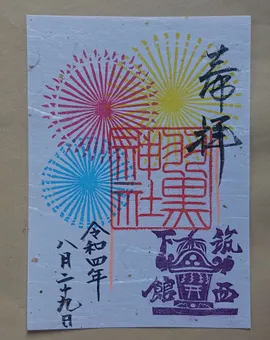 奉拝
羽黒
神社
筑西
下館
令和四年
八月二十九日